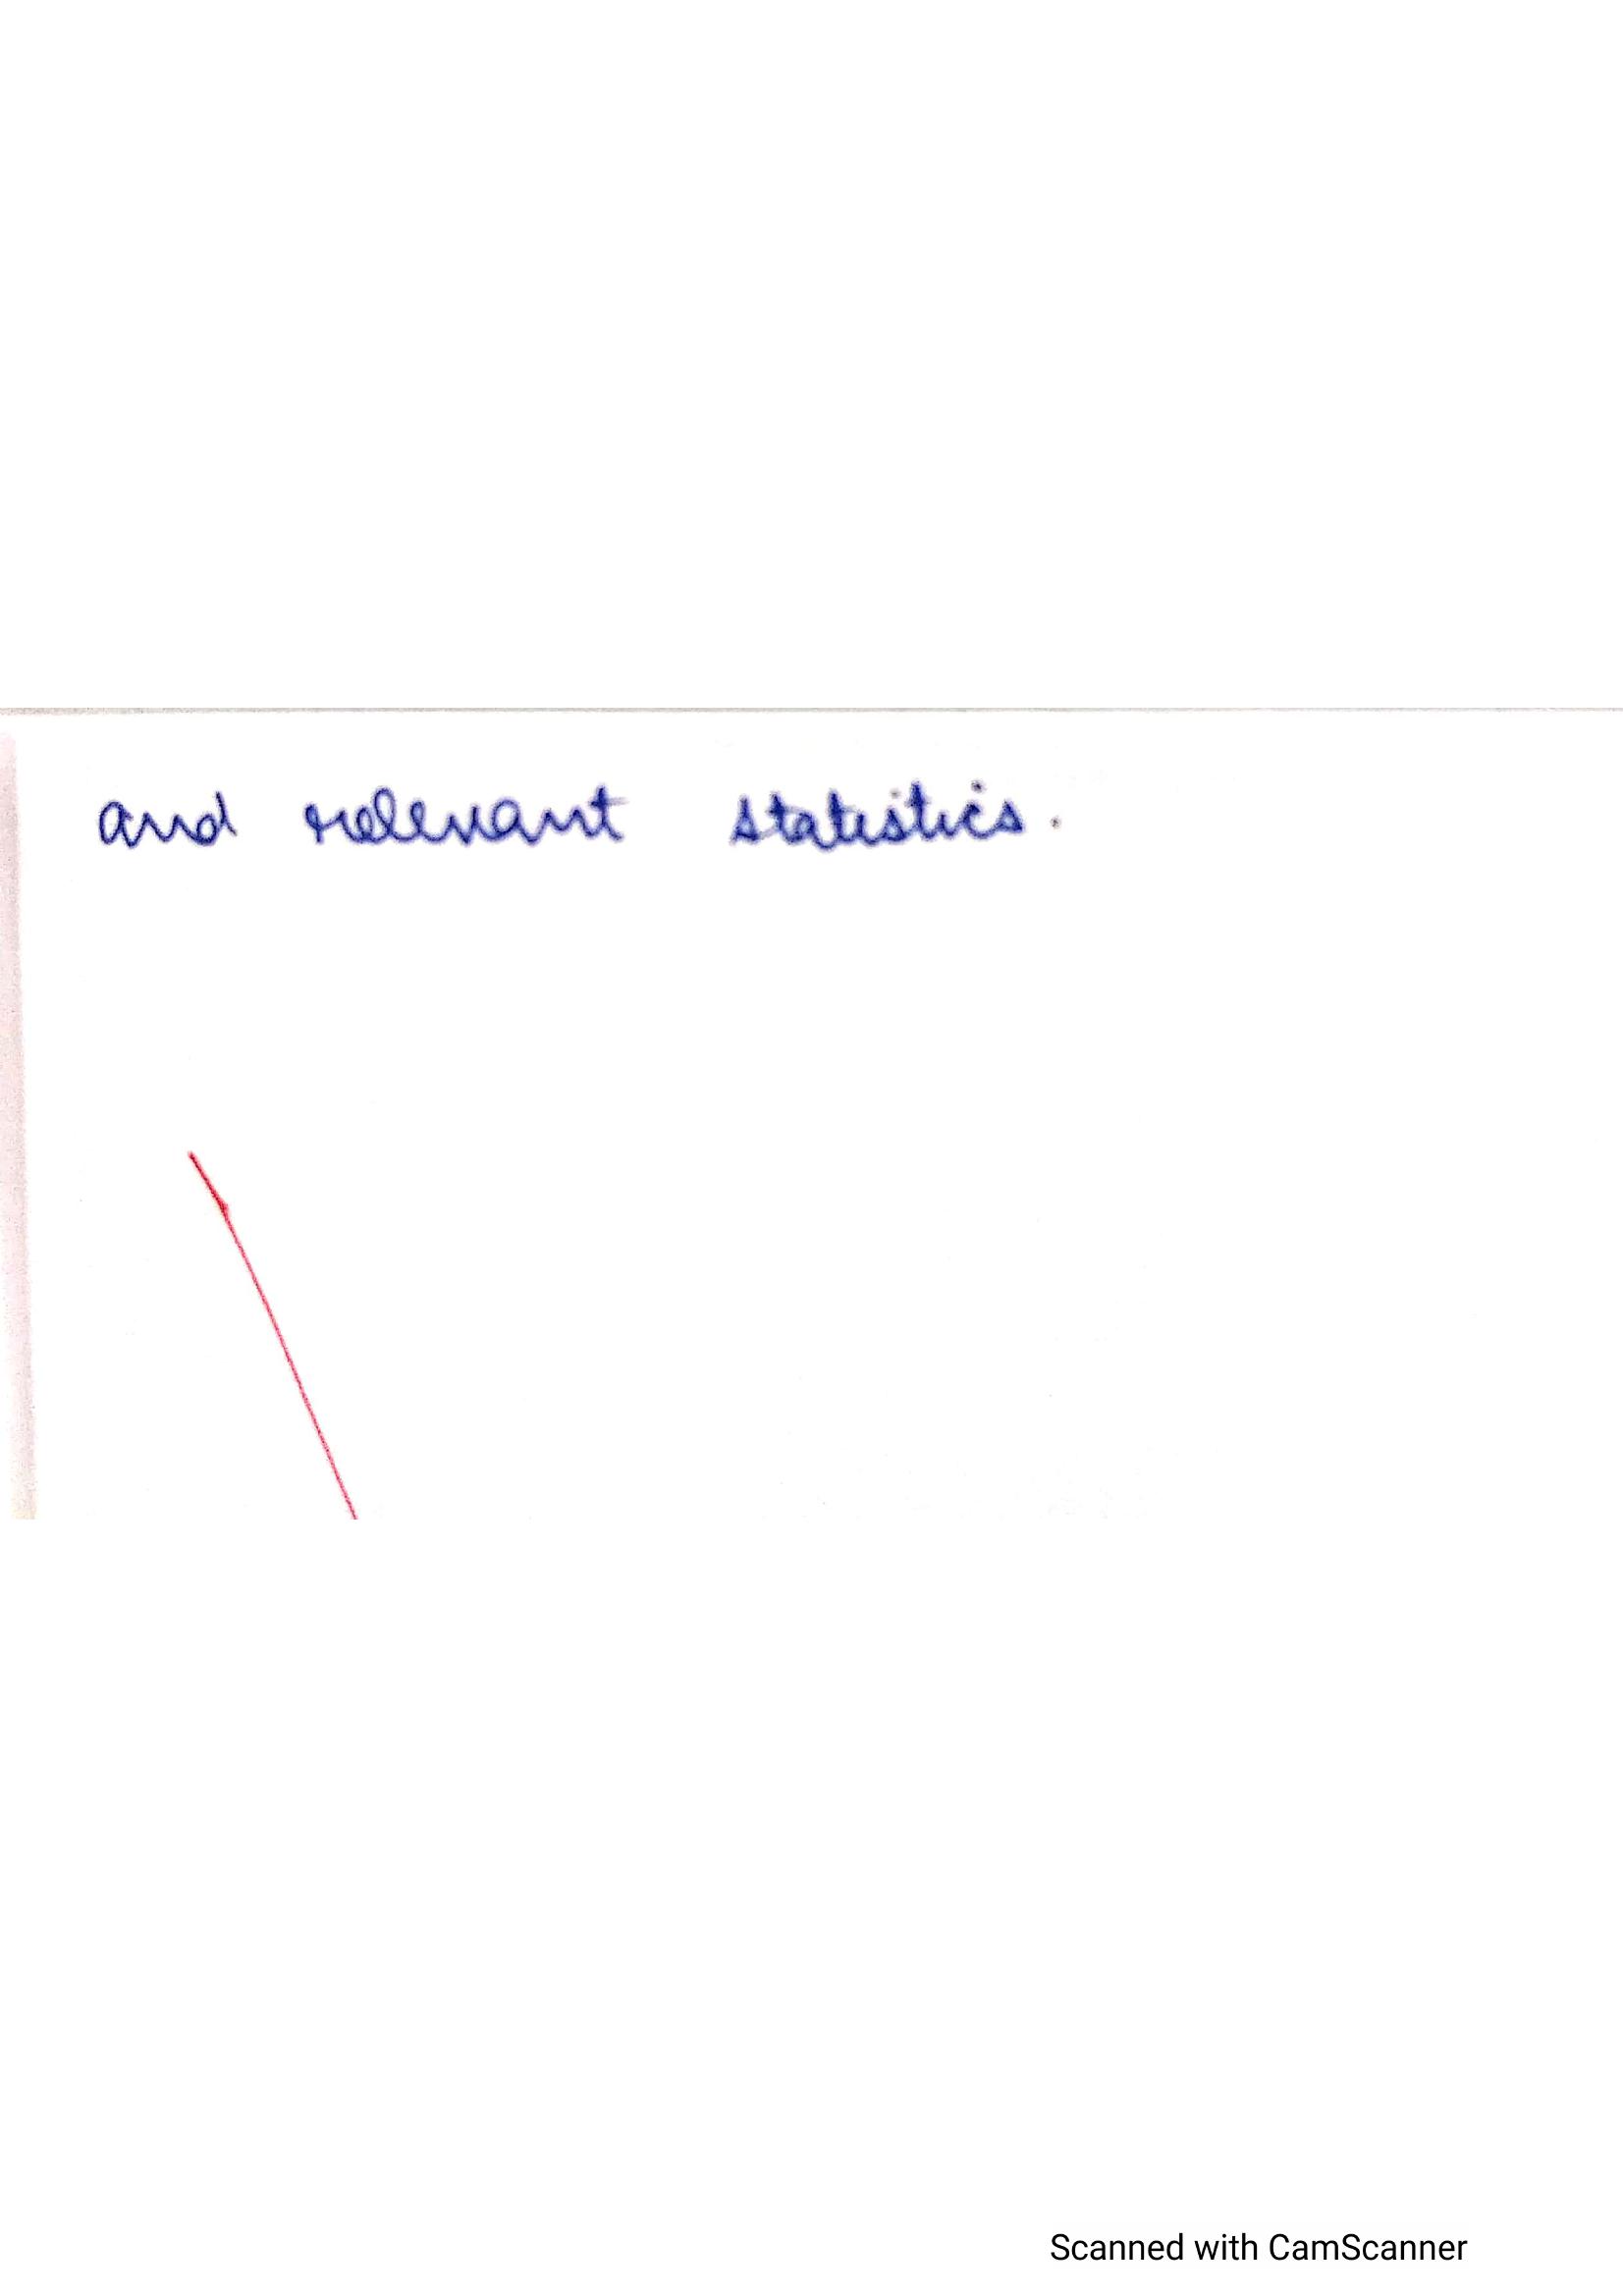 and relevant statistics.
Scanned with CamScanner